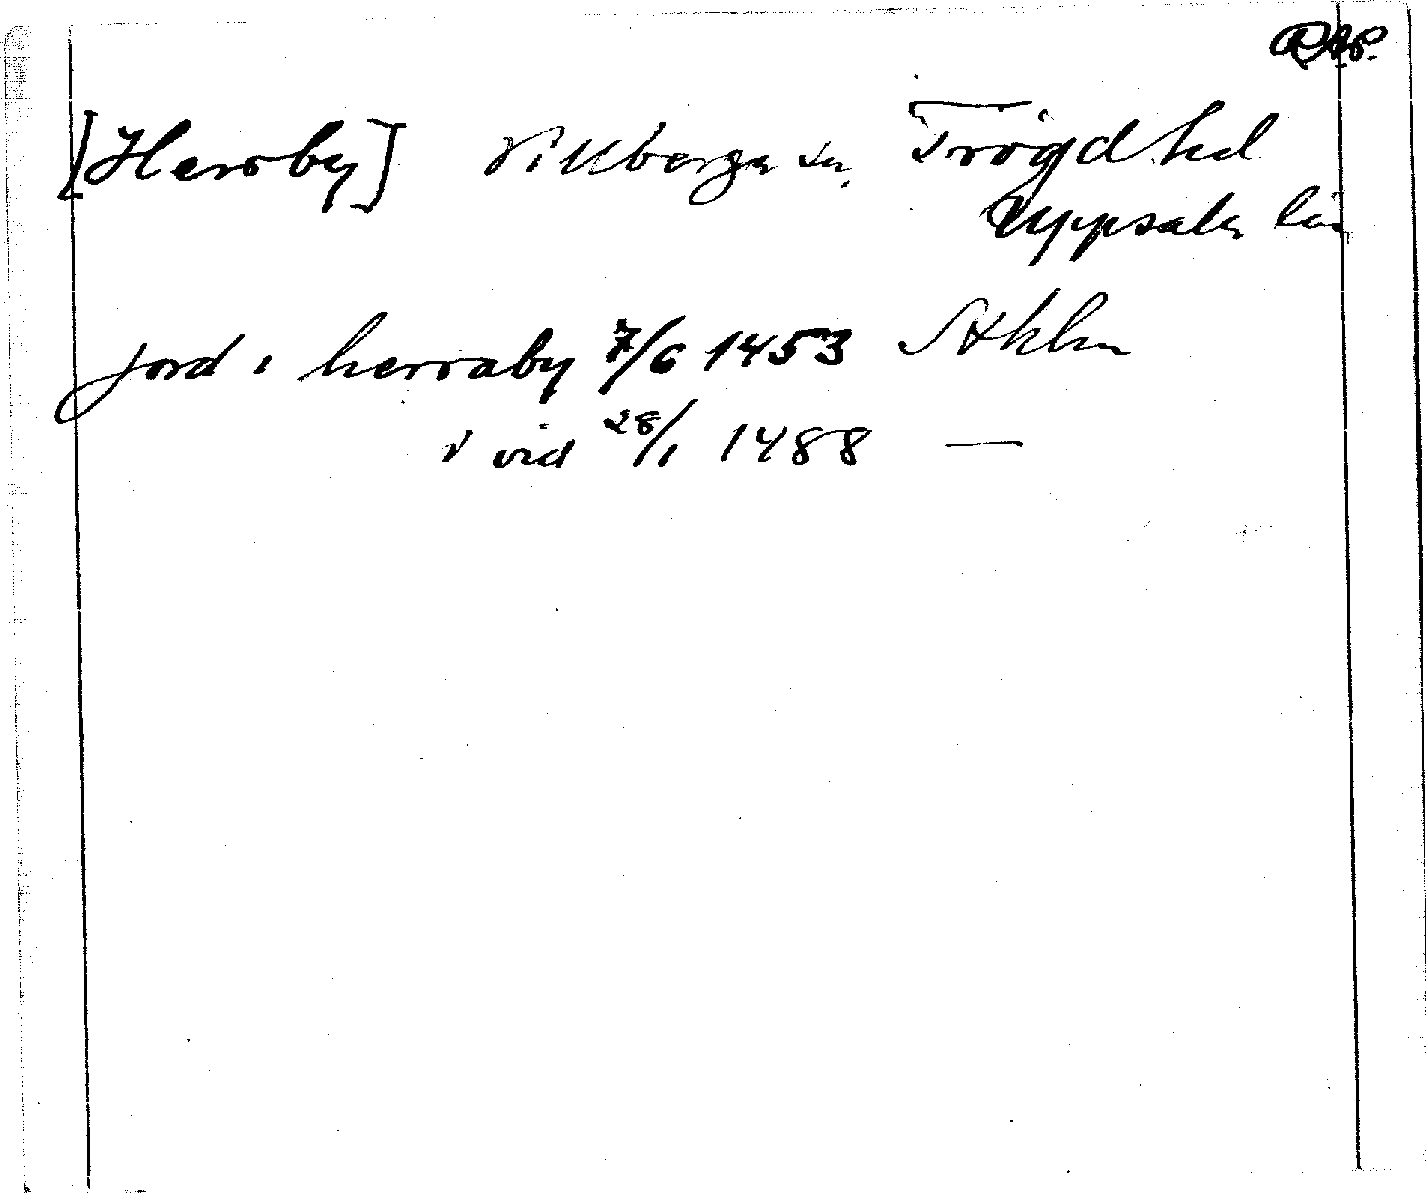 RAP.
[Hersby] Villberga sn, Trögd hd
Uppsala län
jord i herraby 7/6 1453 Sthlm
vid 28/1 1488 —